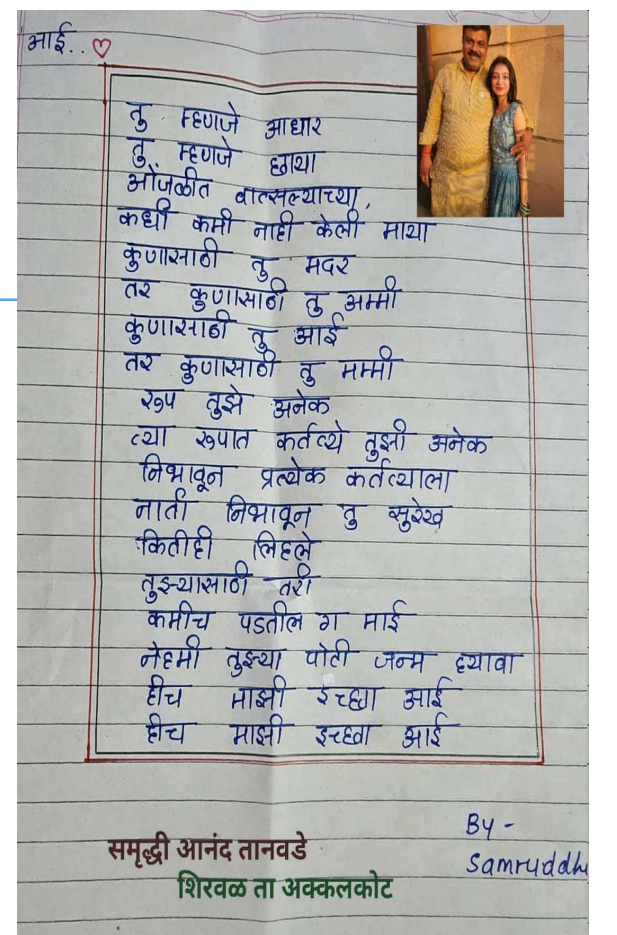 आई..
तु म्हणजे आधार
तु म्हणजे छाया
ओंजळीत वात्सल्याच्या,
कधी कमी नाही केली माया
कुणासाठी तु मदर
तर कुणासाठी तु अम्मी
कुणासाठी तु आई
तर कुणासाठी तु मम्मी
रुप तुझे अनेक
त्या रुपात कर्तव्ये तुझी अनेक
निभावून प्रत्येक कर्तव्याला
नाती निभावून तु सुरेख
कितीही लिहले
तुझ्यासाठी तरी
कमीच पडतील ग माई
नेहमी तुझ्या पोटी जन्म घ्यावा
हीच माझी इच्छा आई
हीच माझी इच्छा आई
By -
Samruddhi
समृद्धी आनंद तानवडे
शिरवळ ता अक्कलकोट